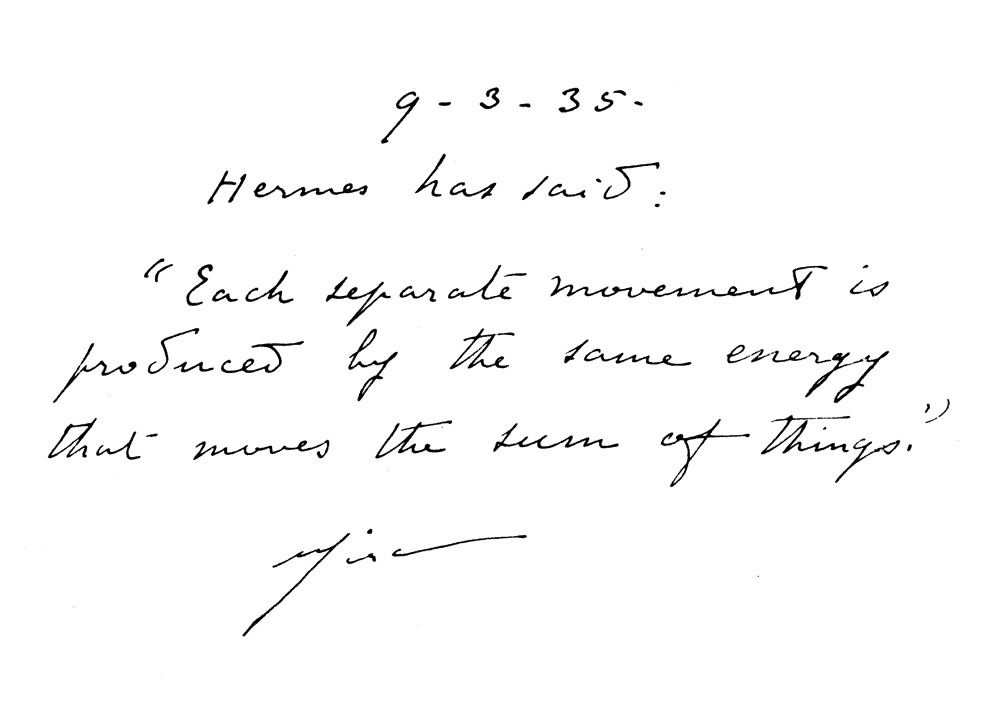 9 - 3 - 35.
Hermes has said:
"Each separate movement is
produced by the same energy
that moves the sum of things."